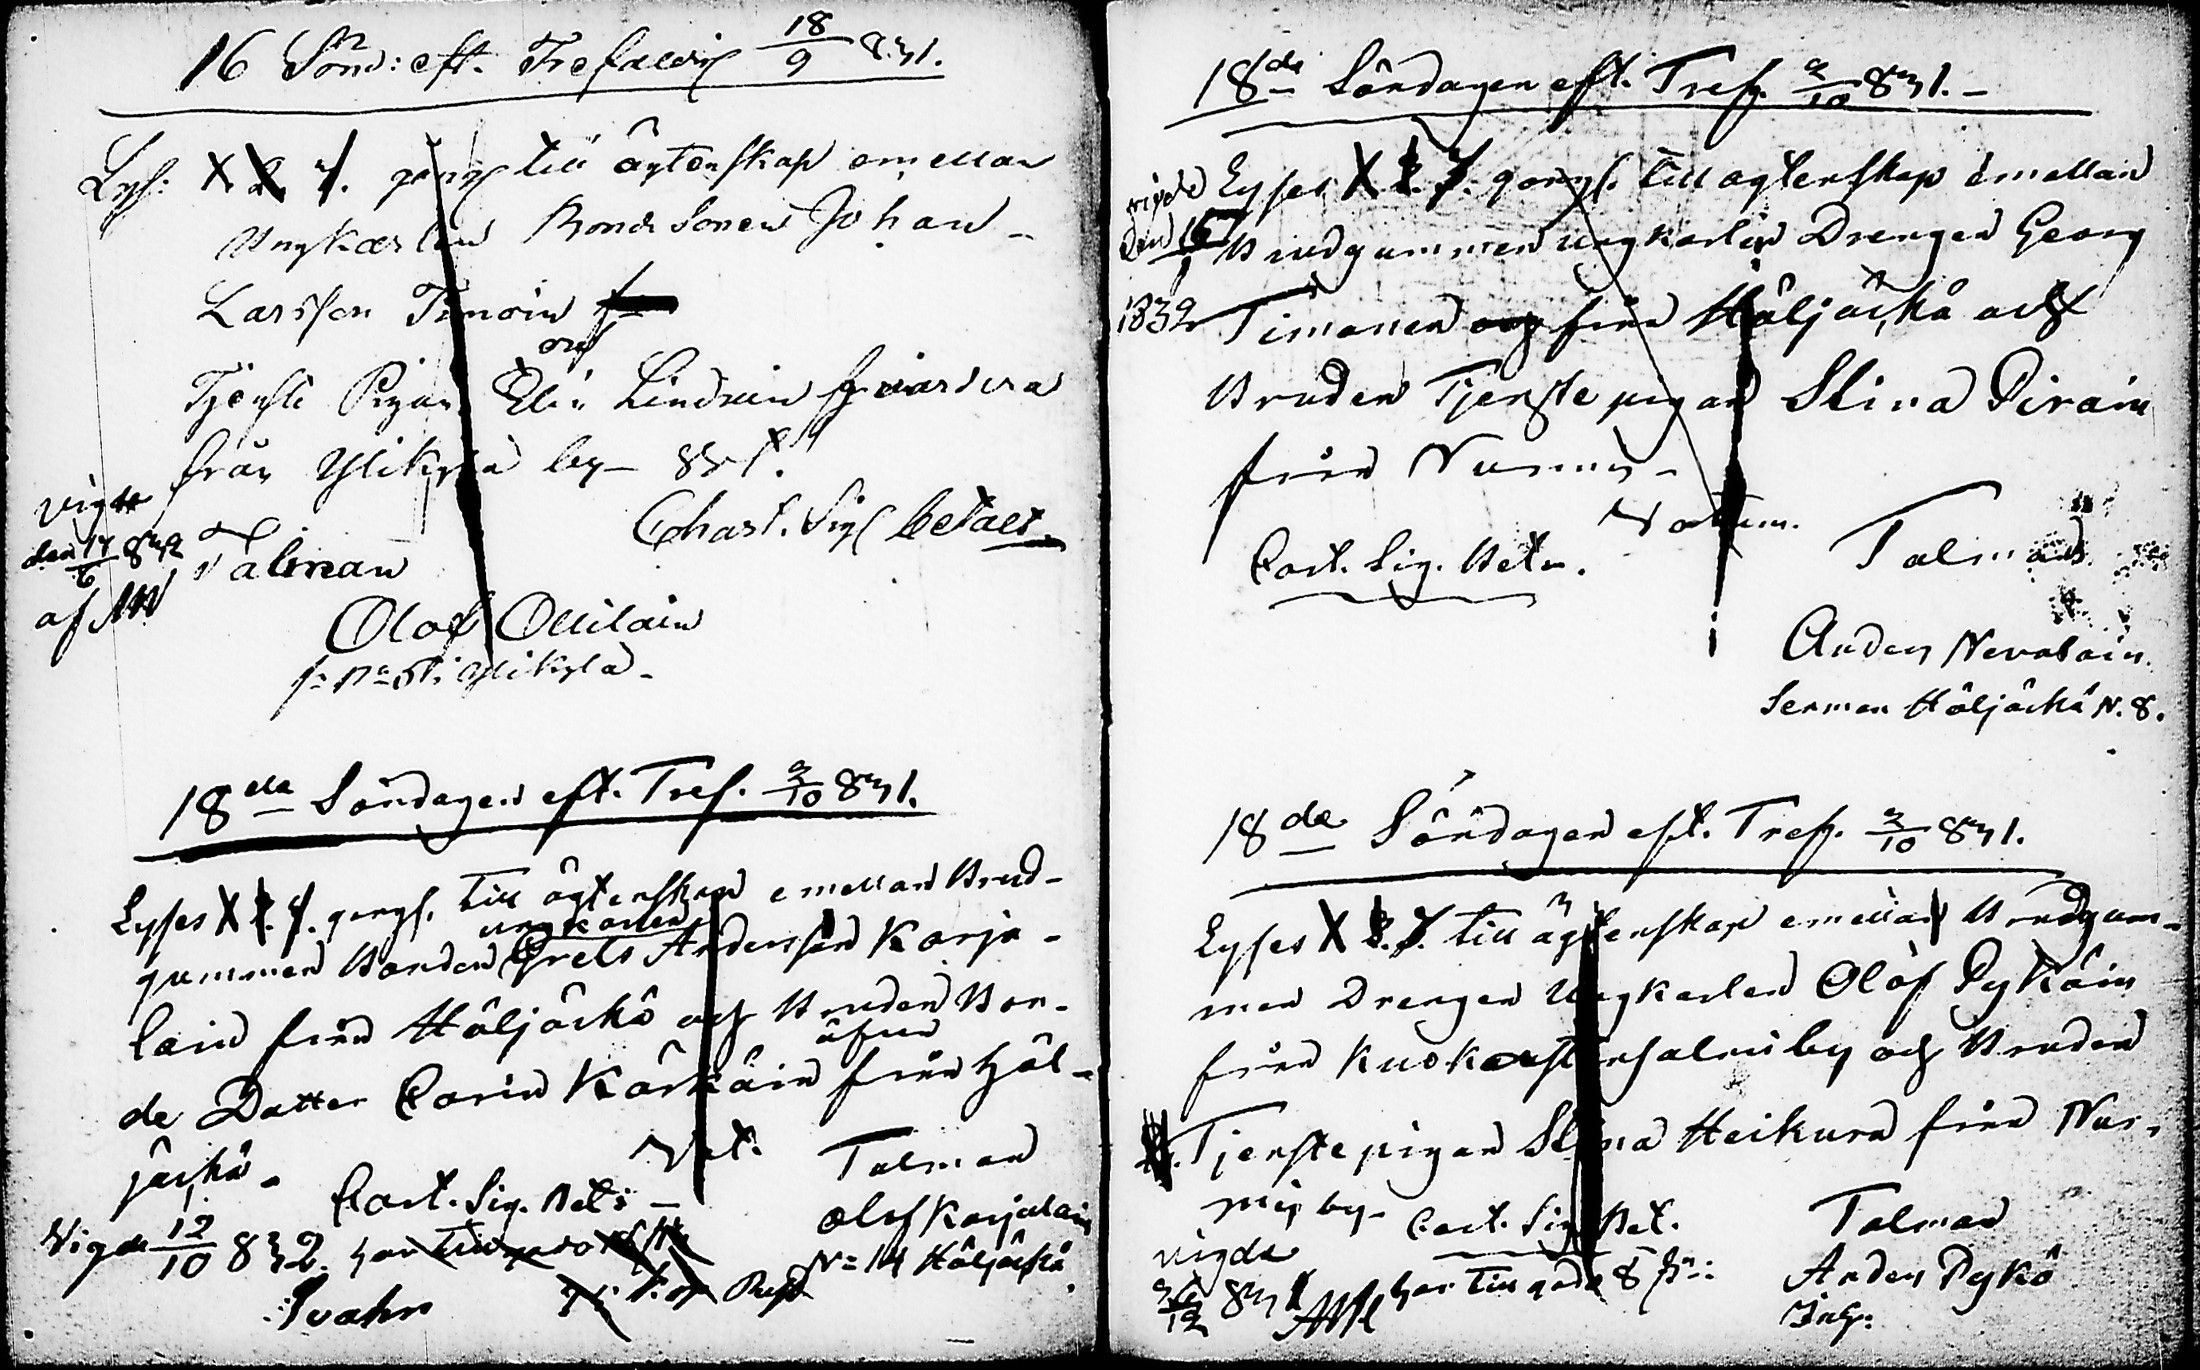 16 Sönd: eft. Trefaldig 18/9 831.
Lys: 1. 2. 3. gång till ägtenskap emellan
Ungkarlen Bonde Sonen Johan
Larsson Timoin
och
Tjenste Pigan Elin Lindrein
från Ylikylä by
Chart. Sig betalt
vigde
den 17/6 832
af
Talman
Olof Ollilain
Ylikylä
18de Söndagen eft. Tref. 2/10 831.
Lyses 1. 2. 3. gångs. till ägtenskap emellan Brud-
ungkarlen
gummen Bonden Grels Andersson Korja-
lain från Höljäckä och Bruden Bon-
äfven
de Dotter Carin Kärkäin från Höl-
jäckä.
Cart. Sig. Bet:
Talman
Olof Korjalain
N:o 14 Höljäckä
Vigde 12/10 832.
Svahn
18de Söndagen eft. Tref. 2/10 831.
vigde
den
1832
Lyses 1. 2. 3. gångs. till ägtenskap emellan
Brudgummen ungkarlen Drengen Georg
Timonen från Höljäckä och
Bruden Tjenstepigan Stina Pirain
från Nurmis
Cart. Sig. Bet.
Talman
Anders Nevalain
Höljäckä N. 8.
18de Söndagen eft. Tref. 2/10 831.
Lyses 1. 2. 3. till ägtenskap emellan Brudgum-
men Drengen Ungkarlen Olof Pykäin
från Kuokastensalmi by och Bruden
Tjenstepigan Stina Heikura från Nur-
mis by
Cart. Sig. Bet.
Talman
Anders Pykö
vigde
26/12 831
har till goda 8